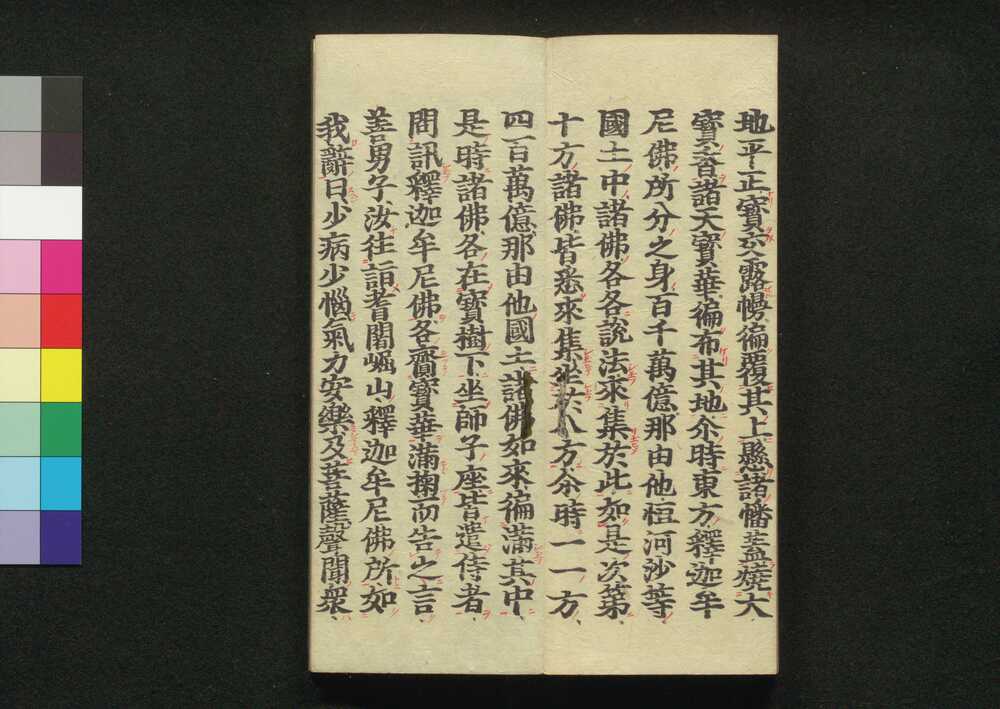 地平正寶交露幔徧覆其上懸諸幡盖燒大
寳香諸天寳華徧布其地尒時東方釋迦牟
尼佛所分之身百千萬億那由他恒河沙等
國土中諸佛各各說法來集於此如是次第
十方諸佛皆悉來集坐於八方尒時一一方
四百萬億那由他國土諸佛如來徧滿其中
是時諸佛各在寶樹下坐師子座皆遣侍者
問訊釋迦牟尼佛各齎寶華滿掬而告之言
善男子汝往詣耆闍崛山釋迦牟尼佛所如
我辭曰少病少惱氣力安樂及菩薩聲聞衆